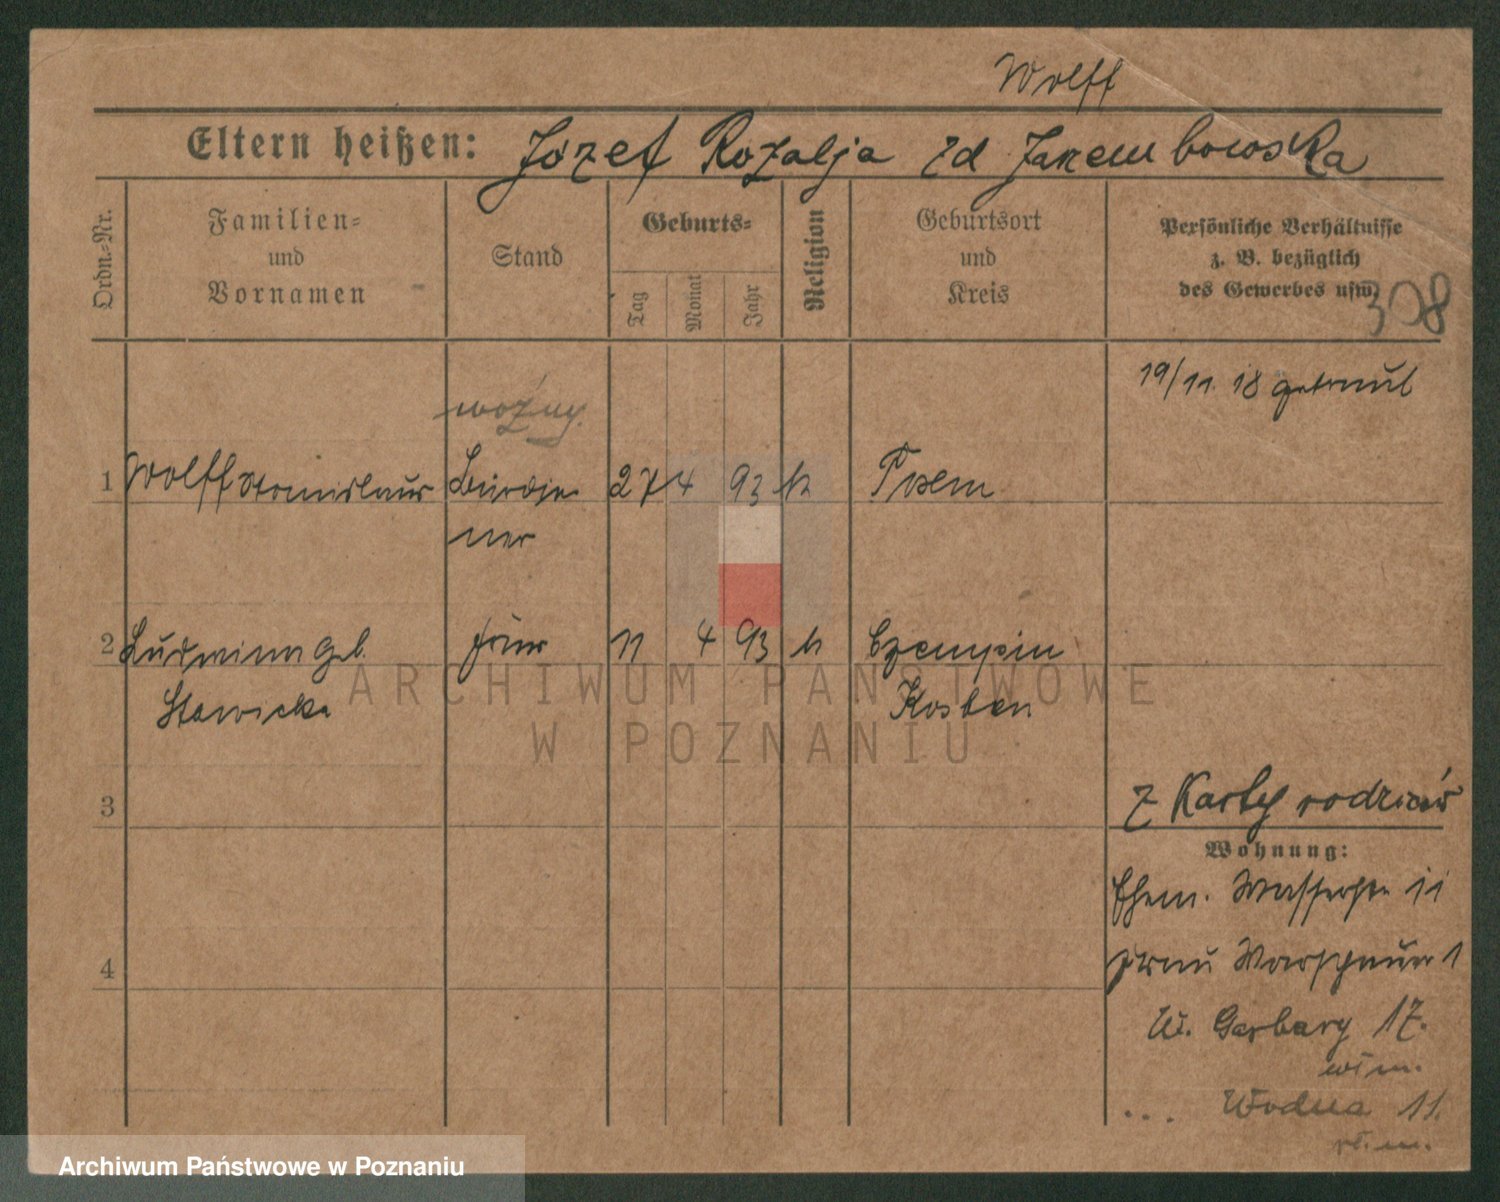 Wolff
Eltern heißen: Józef Rozalja zd Jarembowska
Ordn.-Nr.
Familien-
und
Vornamen
Stand
Geburts-
Tag
Monat
Jahr
Religion
Geburtsort
und
Kreis
Persönliche Verhältnisse
z. B. bezüglich
des Gewerbes usw.
308
19/11. 18 getraut
woźny.
1 Wolff Stanislaus 27 4 93 k Posen
2 Ludwika geb. Frau 11 4 93 k Czempin
Stawicka Kosten
3
z Karty rodziców
Wohnung:
Ehem. Wasserstr 11
Frau Warschauer 1
4
W. Garbary 17.
wł m.
... Wodna 11.
wł. m.
ARCHIWUM PAŃSTWOWE
W POZNANIU
Archiwum Państwowe w Poznaniu